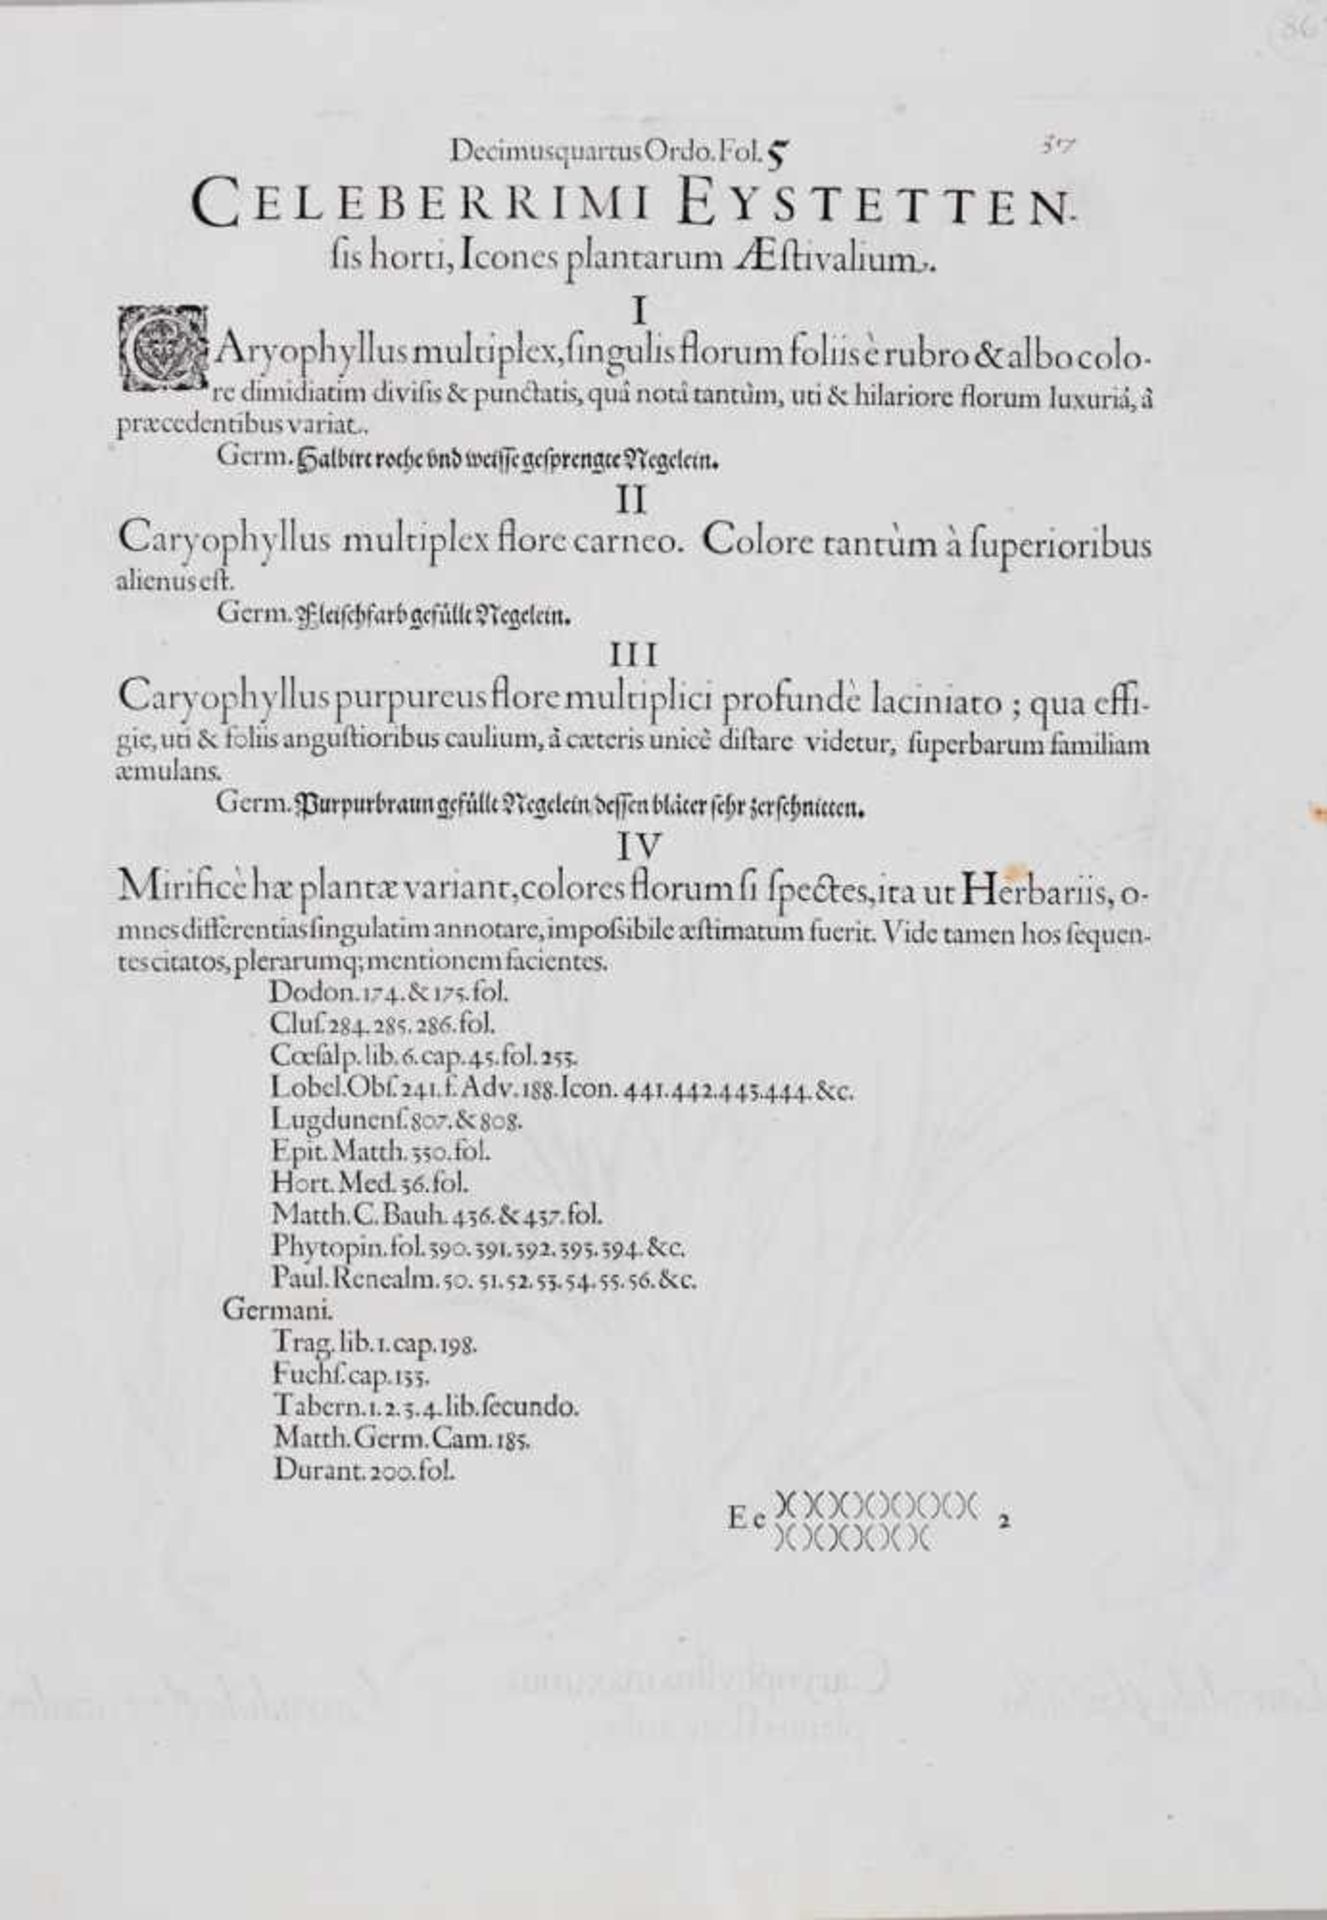 Decimusquartus Ordo. Fol. 5
37
CELEBERRIMI EYSTETTEN-
ſis horti, Icones plantarum Æſtivalium.
I
CAryophyllus multiplex, ſingulis florum foliis è rubro & albo colo-
re dimidiatim diviſis & punctatis, quâ notâ tantùm, uti & hilariore florum luxuriâ, â
præcedentibus variat.
Germ. Halbirt rothe vnd weiſſe geſprengte Negelein.
II
Caryophyllus multiplex flore carneo. Colore tantùm à ſuperioribus
alienus eſt.
Germ. Fleiſchfarb gefüllt Negelein.
III
Caryophyllus purpureus flore multiplici profundè laciniato ; qua effi-
gie, uti & foliis anguſtioribus caulium, à cæteris unicè diſtare videtur, ſuperbarum familiam
æmulans.
Germ. Purpurbraun gefüllt Negelein, deſſen bläter ſehr zerſchnitten.
IV
Mirificè hæ plantæ variant, colores florum ſi ſpectes, ita ut Herbariis, o-
mnes differentias ſingulatim annotare, impoſsibile æſtimatum fuerit. Vide tamen hos ſequen-
tes citatos, plerarumq; mentionem facientes.
Dodon. 174. & 175. fol.
Cluſ. 284. 285. 286. fol.
Cœſalp. lib. 6. cap. 45. fol. 255.
Lobel. Obſ. 241. f. Adv. 188. Icon. 441. 442. 443. 444. &c.
Lugdunenſ. 807. & 808.
Epit. Matth. 550. fol.
Hort. Med. 36. fol.
Matth. C. Bauh. 436. & 437. fol.
Phytopin. fol. 390. 391. 392. 393. 394. &c.
Paul. Renealm. 50. 51. 52. 53. 54. 55. 56. &c.
Germani.
Trag. lib. 1. cap. 198.
Fuchſ. cap. 133.
Tabern. 1. 2. 3. 4. lib. ſecundo.
Matth. Germ. Cam. 185.
Durant. 200. fol.
Ee )()()()()()()()( 2
)()()()()()(